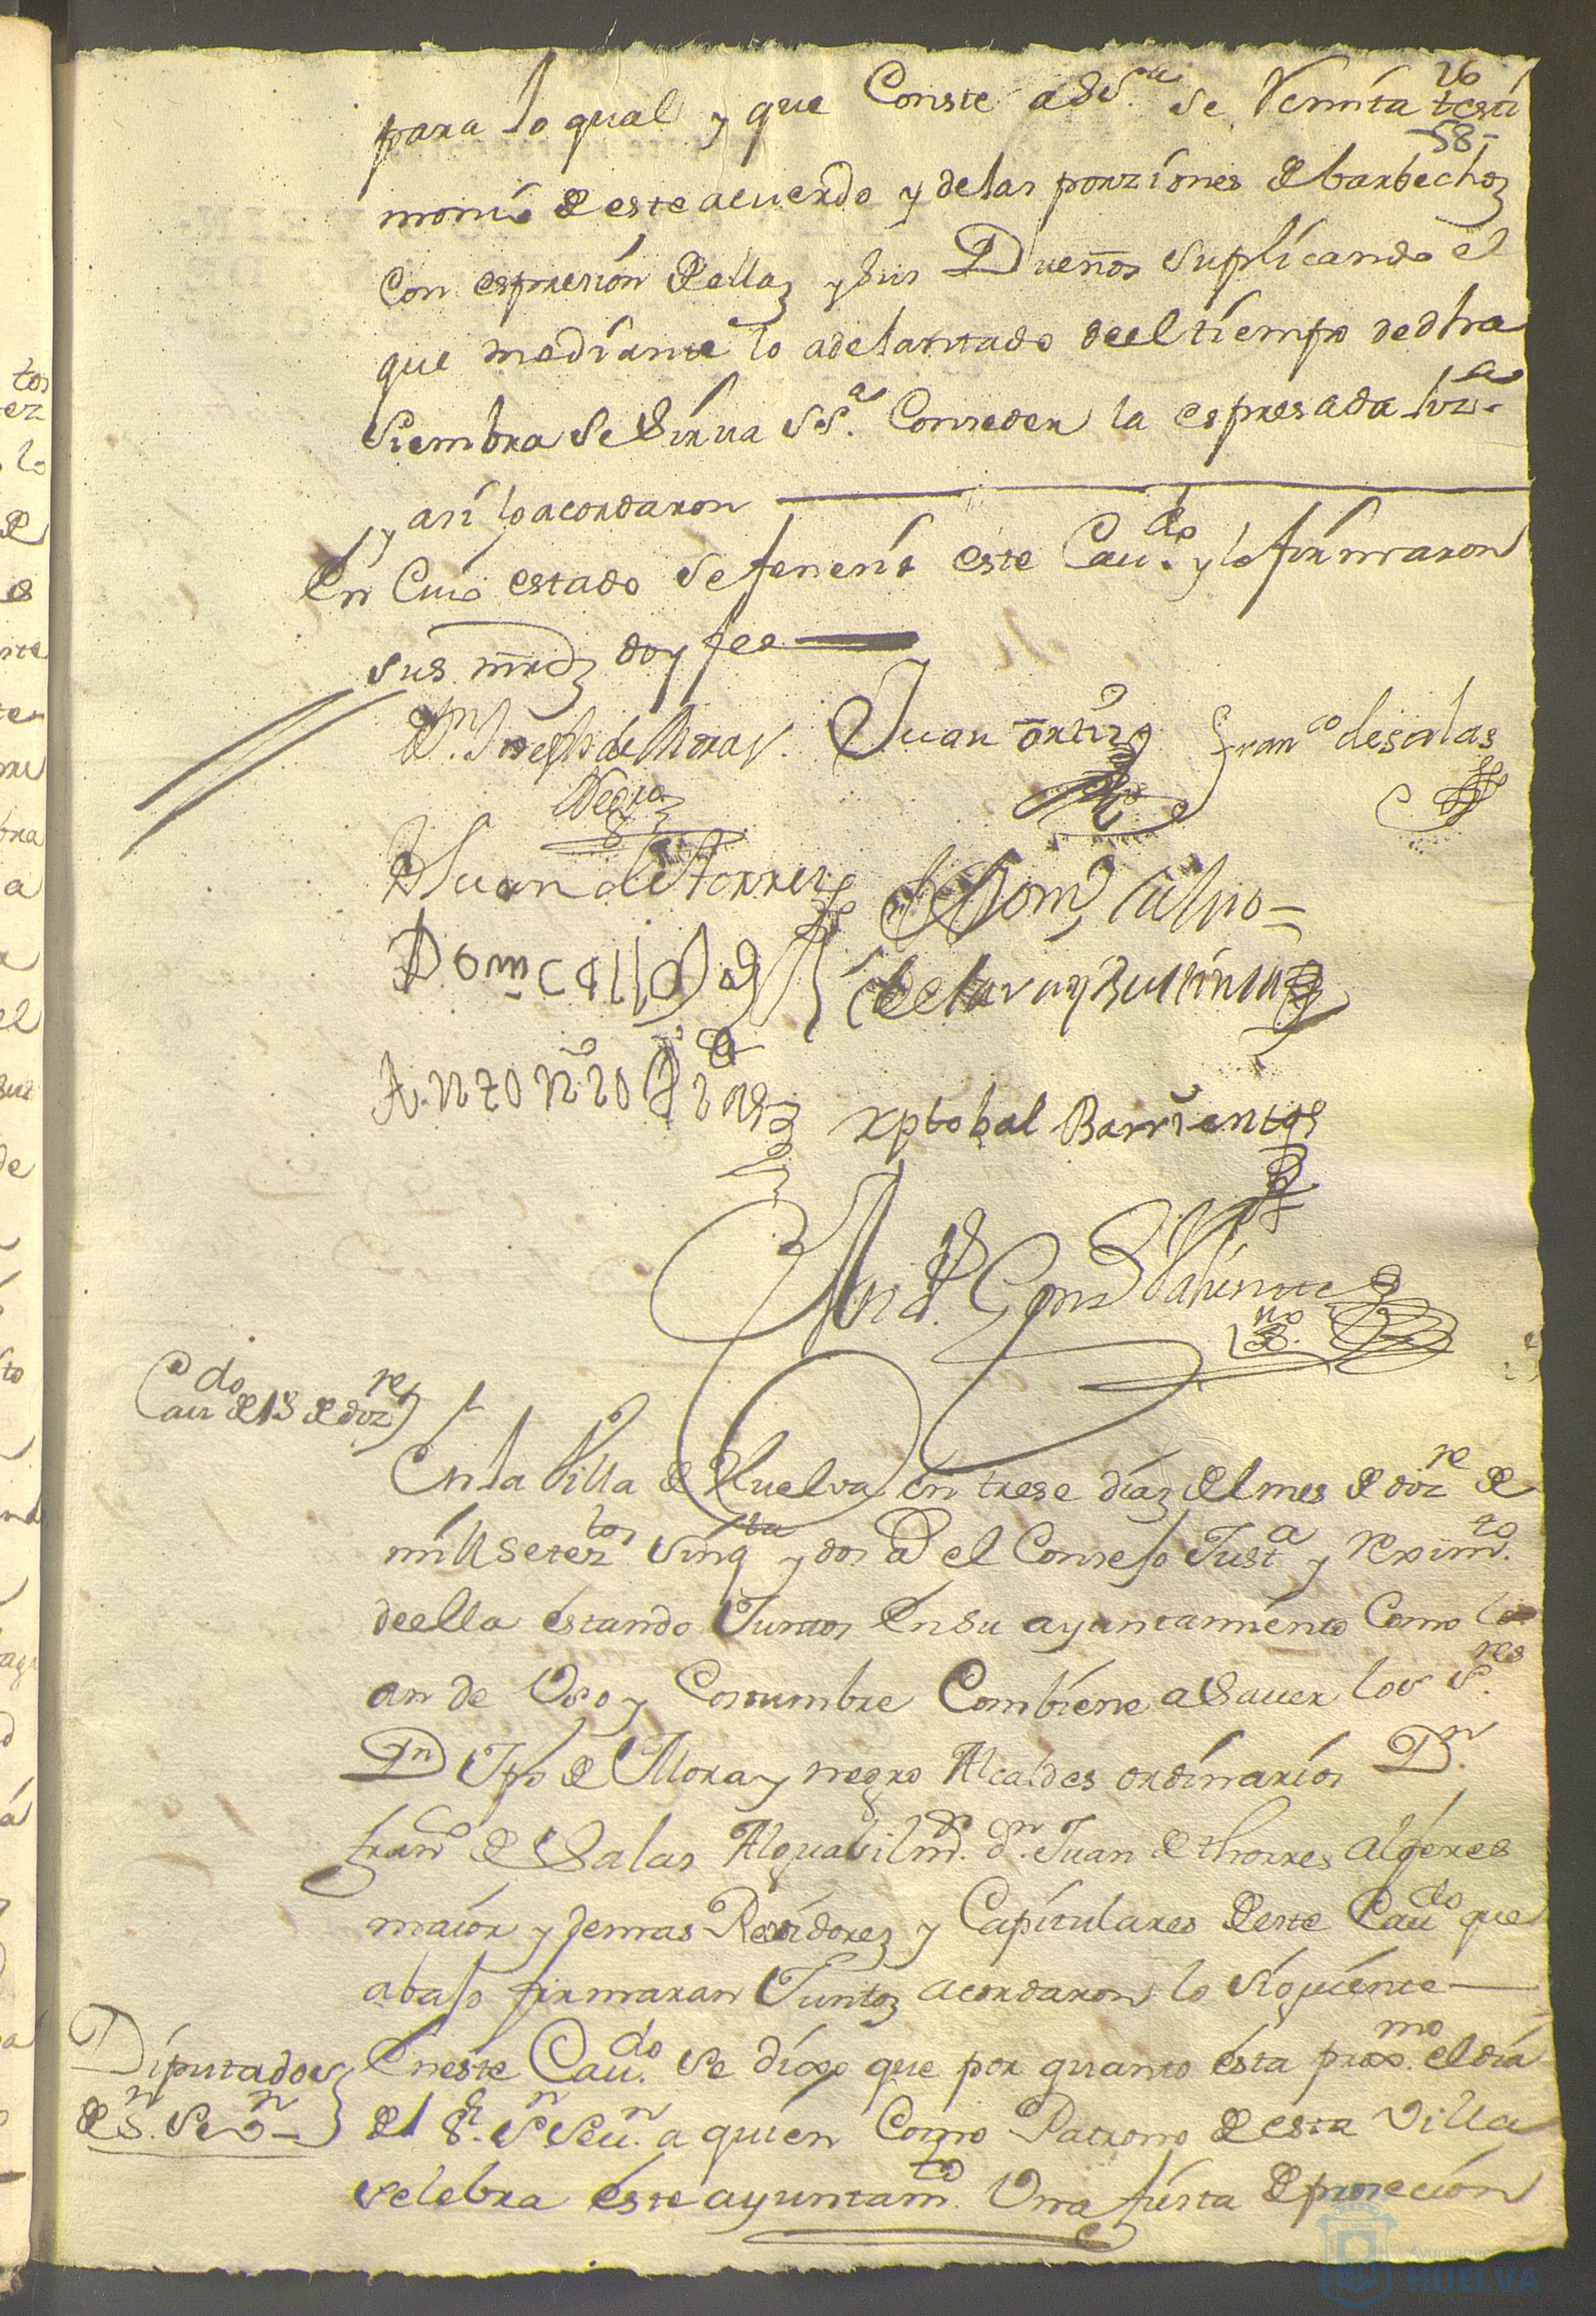 26
para lo qual y que Conste a Sª. Sª. se Remita testi
58-
monio de este acuerdo y de las porziones de barbechos
Con espresion de ellas y sus Dueños Suplicando el
que mediante lo adelantado de el tiempo de dha
Siembra Se Sirva S Sª. Conseder la espresada lizª.
y asi lo acordaron
En Cuio estado se fenenio este Cau.do y lo firmaron
sus mrds doy fee
Dn. Joseph de Mora y Negro
Juan ortiz
Franco de salas
Juan de torres
Domº Calvo
Antonio Dias
xptobal Barrientos
And.s Gonz Valiente
no
Cau.do de 13 de dizre
En la Villa de Huelva en trese dias del mes de dizre de
mill setezos. Vinqta y dos as el Consejo Justa y Reximto.
de ella estando Juntos En su ayuntamiento Como lo
an de Uso y Costumbre Combiene a Saver los Sres.
Dn Jph de Mora y negro Alcaldes ordinarios Dn.
franco de Salas Alguasil mr. dn. Juan de thorres alferes
maior y demas Rexidores y Capitulares de este Caudo que
abajo firmaran Juntos acordaron lo siguiente
Diputados
de Sn. Seun
En este Cau.do se dixo que por quanto esta proxmo. el dia
del Sr. Sn Seun. a quien Como Patrono de esta Villa
selebra este ayuntamto. Una fiesta de prosecion
Ayuntamiento de
HUELVA